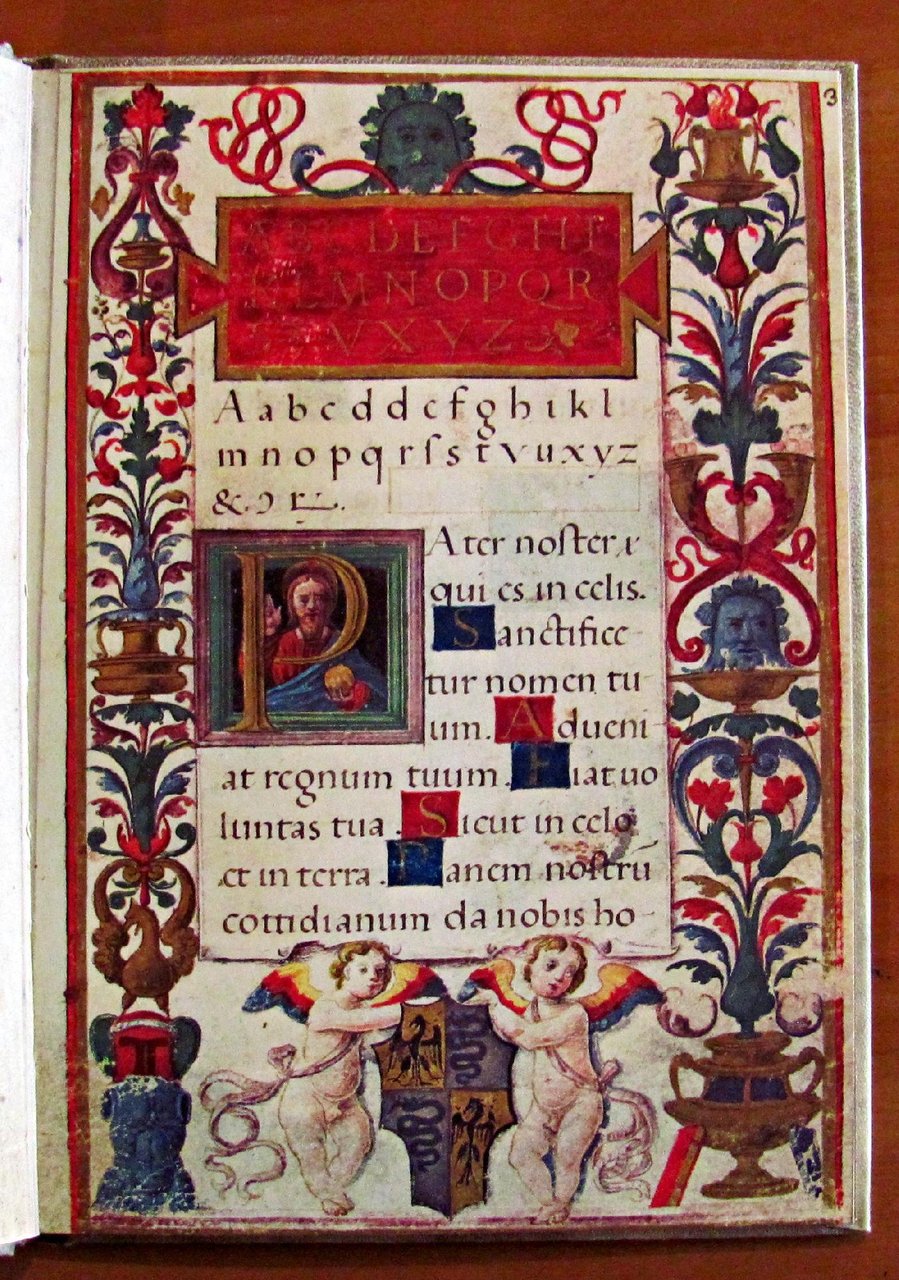 3
A B C D E F G H I
K L M N O P Q R
V X Y Z
A a b c d d e f g h i k l
m n o p q r ſ s t v u x y z
&. ꝯ ꝝ.
PAter noſter
qui es in celis.
Sanctifice-
tur nomen tu-
um. Adueni-
at regnum tuum. Fiat uo
luntas tua. Sicut in celo
et in terra. Panem noſtrū
cottidianum da nobis ho-